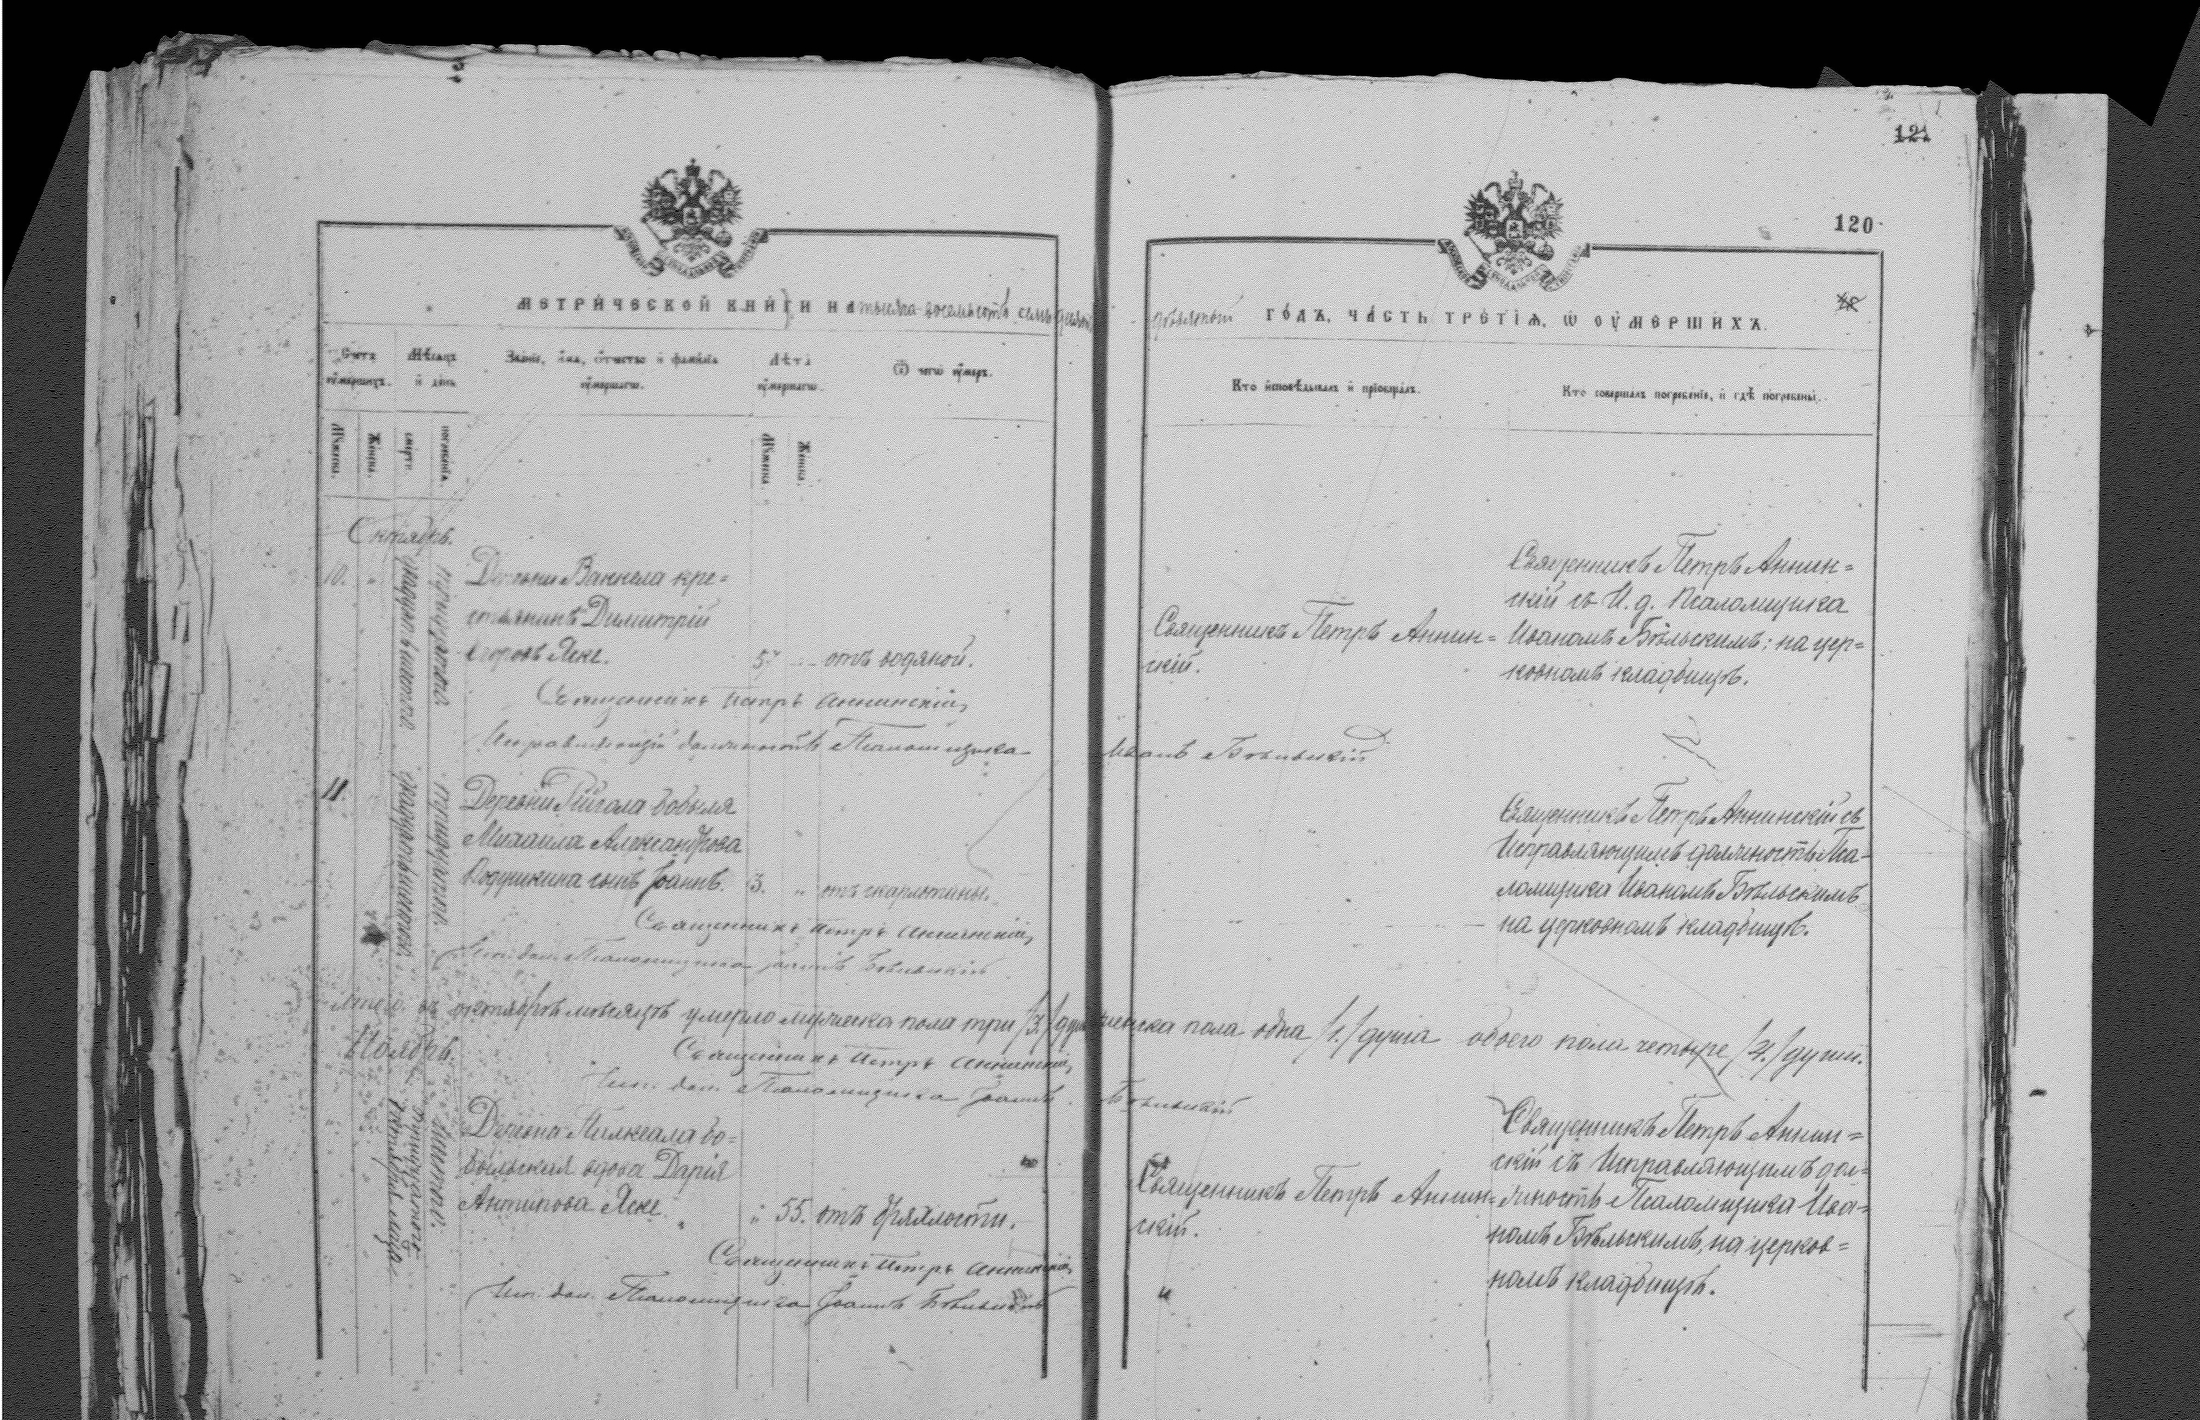 121
120
МЕТРИЧЕСКОЙ КНИГИ НА тысяча восемьсотъ семьдесятъ
девятый ГОДЪ, ЧАСТЬ ТРЕТІЯ, Ѡ ОУМЕРШИХЪ.
Счетъ оумершихъ.
Мѣсяцъ и день
Званіе, имя, отчество и фамилія оумершагѡ.
Лѣта оумершагѡ.
Ѿ чегѡ оумеръ.
Кто исповѣдывалъ и пріобщалъ.
Кто совершалъ погребеніе, и гдѣ погребены.
Мужеска.
Женска.
смерти.
погребенія.
Мужеска
Женска.
Октябрь.
10.
Деревни Ваккела кре=
стьянинъ Димитрій
Егоровъ Яске.
57
отъ водяной.
Священникъ Петръ Аннин=
скій.
Священникъ Петръ Аннин=
скій съ И. д. Псаломщика
Иваномъ Бѣльскимъ; на цер=
ковномъ кладбищѣ.
Священникъ Петръ Аннинскій,
Исправляющій должность Псаломщика Иванъ Бѣльскій
11.
Деревни бобыля
Михаила Александрова
сынъ Іоаннъ.
3.
отъ скарлатины.
Священникъ Петръ Аннинскій съ
Исправляющимъ должность Пса-
ломщика Иваномъ Бѣльскимъ
на церковномъ кладбищѣ.
Священникъ Петръ Аннинскій,
Исп. дол. Псаломщика Іоаннъ Бѣльскій
Итого въ октябрѣ мѣсяцѣ умерло мужеска пола три /3./ душ женска пола одна /1./ душа обоего пола четыре /4./ души.
Священникъ Петръ Аннинскій,
Исп. дол. Псаломщика Іоаннъ Бѣльскій
Ноябрь.
Деревни бо=
быльская вдова Дарія
Антипова Яске
55.
отъ дряхлости.
Священникъ Петръ Аннин=
скій.
Священникъ Петръ Аннин=
скій съ Исправляющимъ дол=
жность Псаломщика Ива=
номъ Бѣльскимъ, на церков=
номъ кладбищѣ.
Священникъ Петръ Аннинскій,
Исп. дол. Псаломщика Іоаннъ Бѣльскій